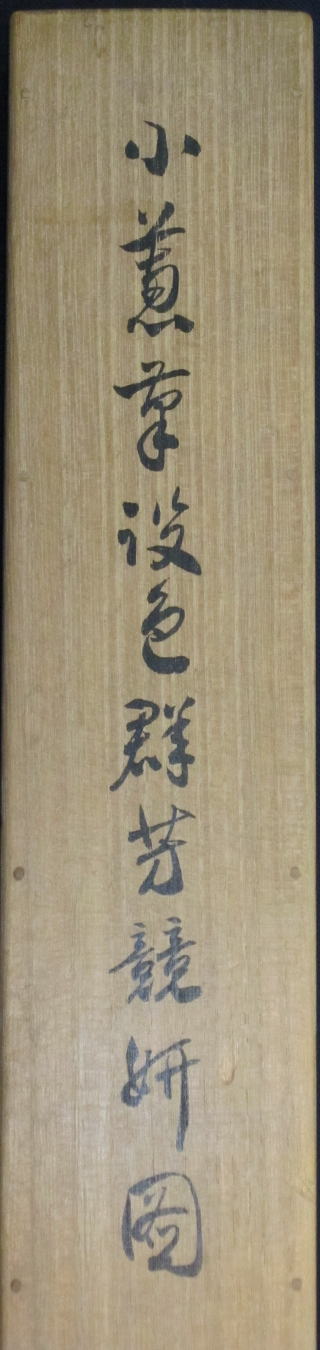 小蕙筆設色群芳競妍圖